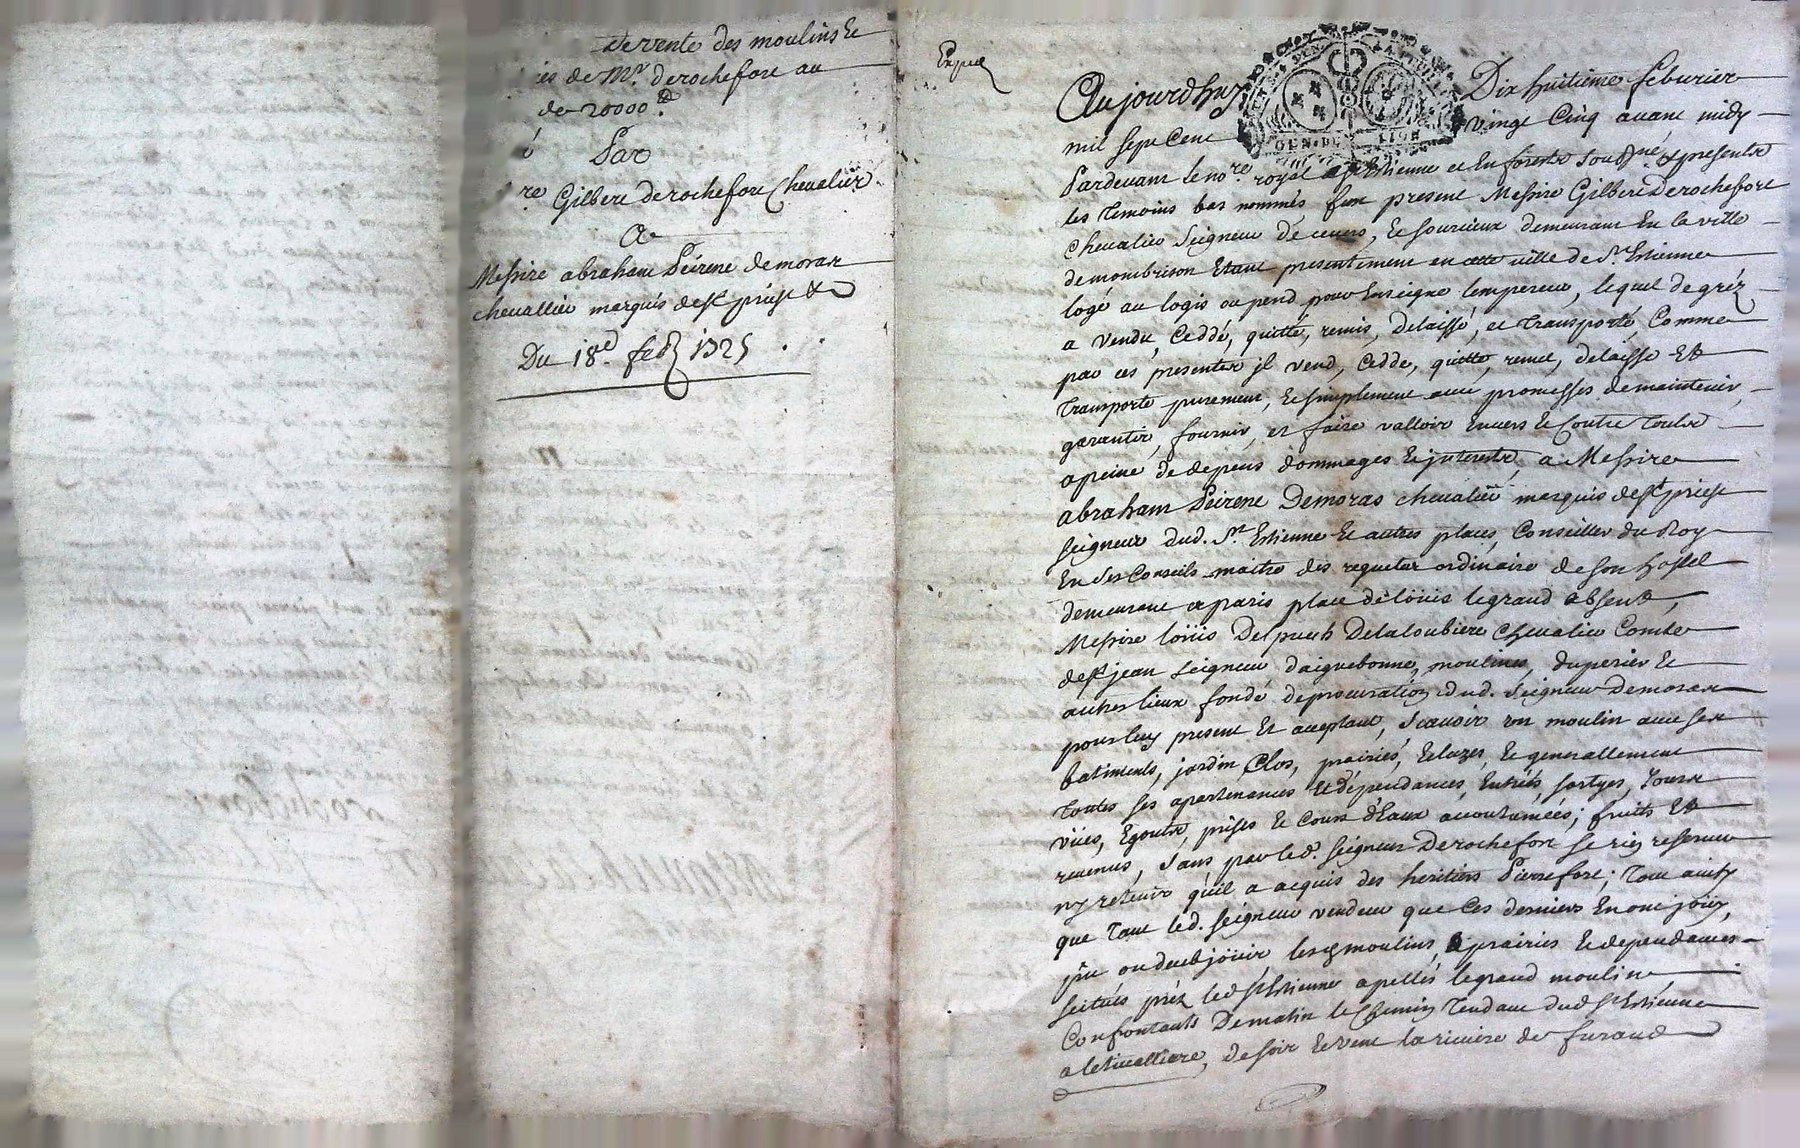 de vente des moulins &
es de Mr. derochefort au
de 20000 #.
Par
re Gilbert derochefort Chevalier
A
Messire abraham Peirene demoras
chevallier marquis de st priest &
Du 18e. feb 1725
Expié
Aujourdhuy Dix huitieme feburier
mil sept Cent vingt Cinq avant midy
Pardevant le nore. royal a st Estienne et En forests sousné. & presents
les temoins bas nommés fut present Messire Gilbert Derochefort
chevalier Seigneur de ceuers, & sourcieux demeurant En la ville
demombrison Etant presentement en cette ville de St. Estienne
logé au logis ou pend pour Enseigne lempereur, lequel de gréz
a vendu, Ceddé, quitté, remis, delaissé, et transporté, Comme
par ces presentes jl vend, Cedde, quitte, remet, delaisse Et
transporte purement, & simplement avec promesses de maintenir,
garantir, fournir, et faire valloir Envers & Contre touts
a peine de depens dommages & jnterests, a Messire
abraham Peirene Demoras chevalier marquis de st priest
seigneur dud. St. Estienne & autres places, Conseiller du Roy
En ses Conseils maitre des requetes ordinaire de son hostel
demeurant a paris place de loüis legrand absent,
Messire loüis Delpuech Delaloubiere Chevalier Comte
de st jean seigneur daiguebonne, moulines, duperier &
autres lieux fondé deprocuration dud. Seigneur Demoras
pour luy present Et acceptant, Scavoir un moulin avec ses
batiments, jardin Clos, prairies, Ecluzes, & generallement
toutes ses apartenances & dépendances, Entrées, sortyes, Jours
vües, Egouts, prises & Cours d'Eaux accoutumées; fruits Et
revenus, sans par led. seigneur Derochefort se rien reserver
ny retenir qu'il a acquis des heritiers Pierrefort; tout ainsy
que tant led. seigneur vendeur que Ces derniers En ont joüy,
pû ou deub joüir lesd moulins, prairies & dependances
scitués préz led st Estienne apellés legrand moulin
Confrontants De matin le Chemin tendant dud st Estienne
a letivalliere, de soir & vent la riviere de furand